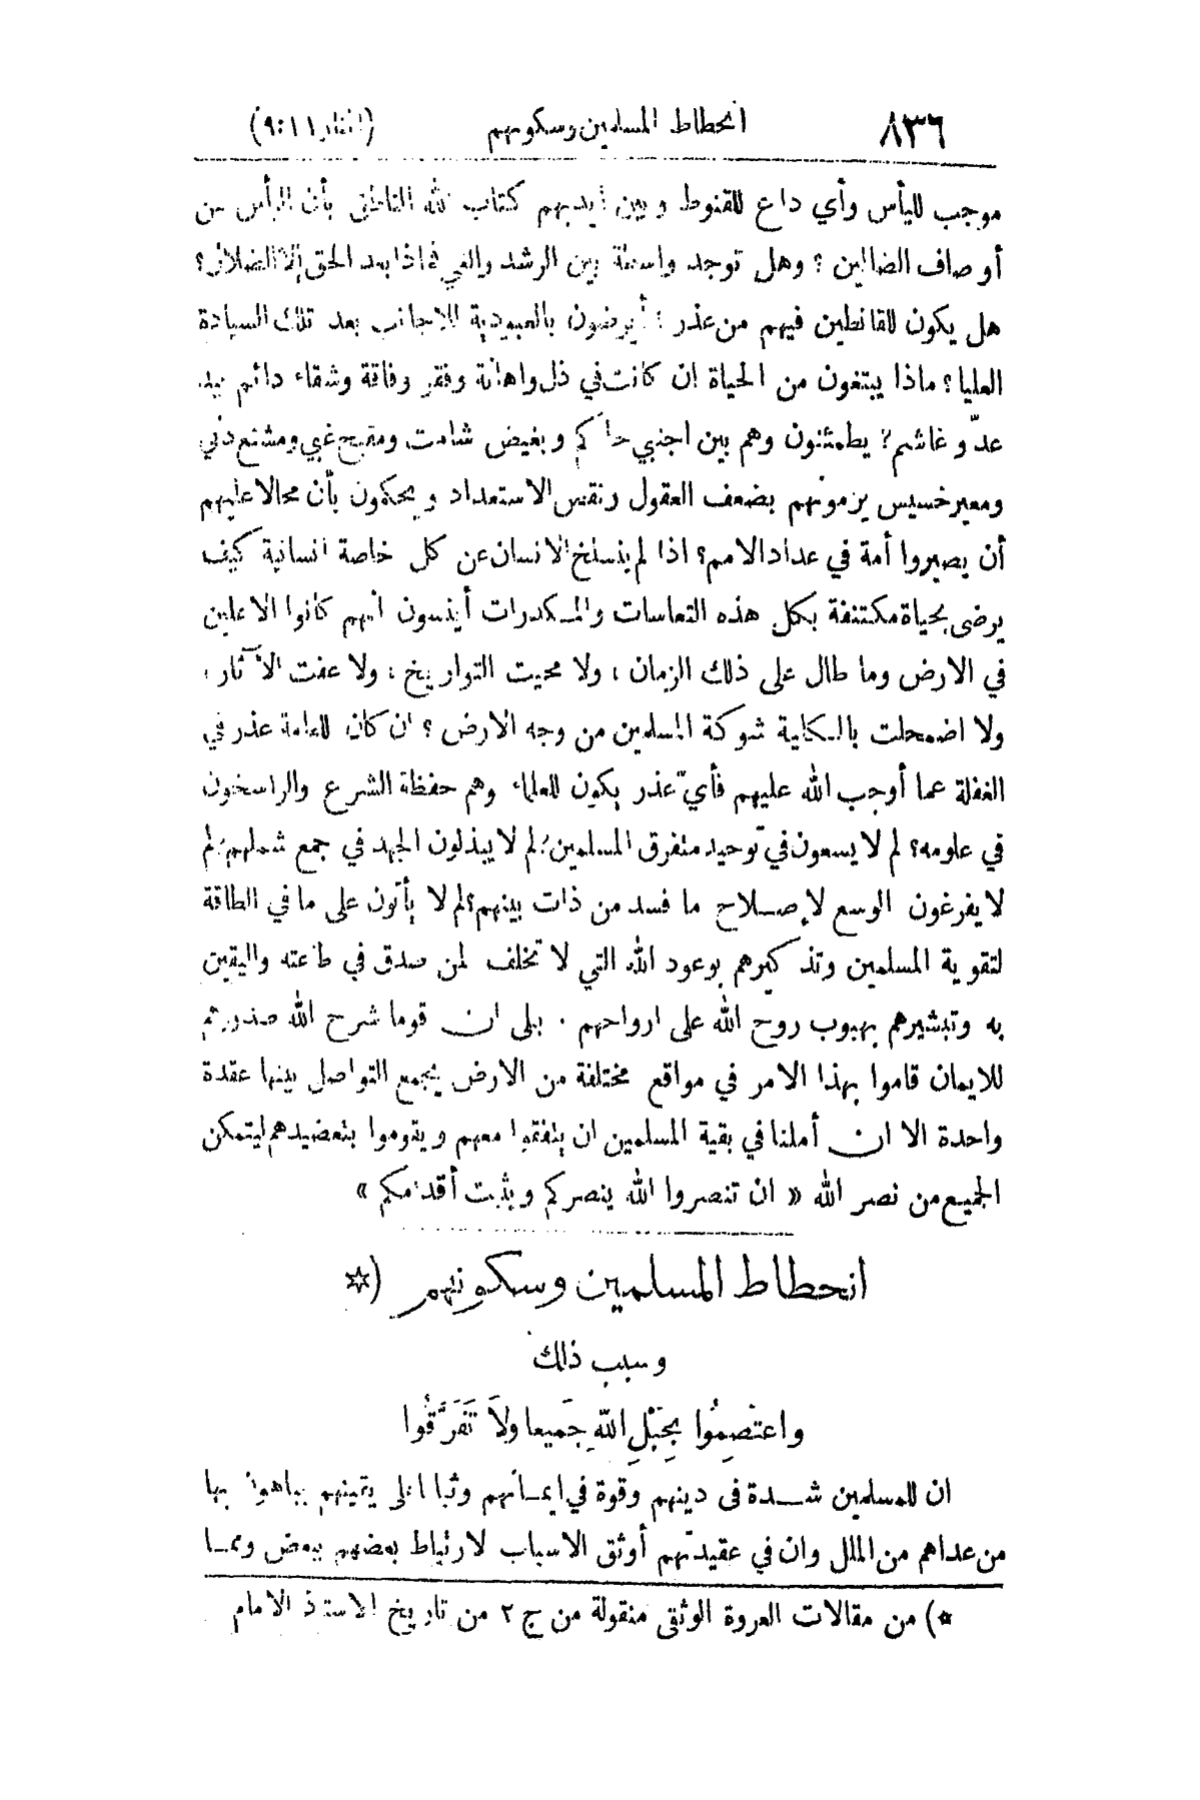 ٨٣٦ انحطاط المسلمين وسكونهم (المنار ١١ : ٩)
موجب لليأس وأي داع للقنوط وبين أيديهم كتاب الله الناطق بأن اليأس من
أوصاف الضالين ؟ وهل توجد واسطة بين الرشد والغي فماذا بعد الحق إلا الضلال ؟
هل يكون للقانطين فيهم من عذر ؟ أيرضون بالعبودية للاجانب بعد تلك السيادة
العليا ؟ ماذا يبتغون من الحياة ان كانت في ذل واهانة وفقر وفاقة وشقاء دائم بيد
عدّو غاشم ؟ يطمئنون وهم بين اجنبي حاكم وبغيض شامت ومقبح غبي ومشنع دني
ومعير خسيس يرمونهم بضعف العقول ونقص الاستعداد ويحكمون بأن محالا عليهم
أن يصيروا أمة في عداد الامم ؟ اذا لم ينسلخ الانسان عن كل خاصة انسانية كيف
يرضى بحياة مكتنفة بكل هذه التعاسات والمكدرات أينسون انهم كانوا الاعلين
في الارض وما طال على ذلك الزمان ، ولا محيت التواريخ ، ولا عفت الآثار ،
ولا اضمحلت بالكلية شوكة المسلمين من وجه الارض ؟ ان كان للعامة عذر في
الغفلة عما أوجب الله عليهم فأيّ عذر يكون للعلماء وهم حفظة الشرع والراسخون
في علومه ؟ لم لا يسعون في توحيد متفرق المسلمين ؟ لم لا يبذلون الجهد في جمع شملهم ؟ لم
لا يفرغون الوسع لإصلاح ما فسد من ذات بينهم ؟ لم لا يأتون على ما في الطاقة
لتقوية المسلمين وتذكيرهم بوعود الله التي لا تخلف لمن صدق في طاعته واليقين
به وتبشيرهم بهبوب روح الله على ارواحهم . بلى ان قوما شرح الله صدورهم
للايمان قاموا بهذا الامر في مواقع مختلفة من الارض يجمع التواصل بينها عقدة
واحدة الا ان أملنا في بقية المسلمين ان يتفقوا معهم ويقوموا بتعضيدهم ليتمكن
الجميع من نصر الله « ان تنصروا الله ينصركم ويثبت أقدامكم »
انحطاط المسلمين وسكونهم (*
وسبب ذلك
واعتَصِمُوا بِحَبْلِ اللّهِ جَميعا ولاَ تَفَرَّقُوا
ان للمسلمين شدة فى دينهم وقوة في ايمانهم وثباتا على يقينهم يباهون بها
من عداهم من الملل وان في عقيدتهم أوثق الاسباب لارتباط بعضهم ببعض ومما
*) من مقالات العروة الوثقى منقولة من ج ٢ من تاريخ الاستاذ الامام